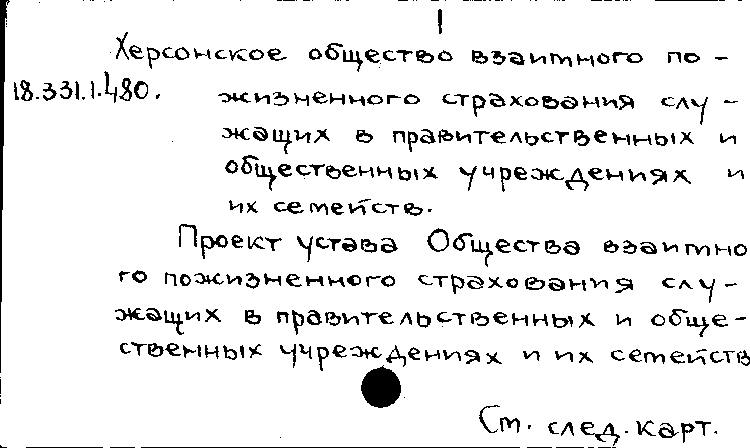 I
Херсонское общество взаимного по-
18.331.1.480.
жизненного страхования слу-
жащих в правительственных и
общественных учреждениях и
их семейств.
Проект устава Общества взаимно
го пожизненного страхования слу-
жащих в правительственных и обще-
ственных учреждениях и их семейств
См. след. карт.